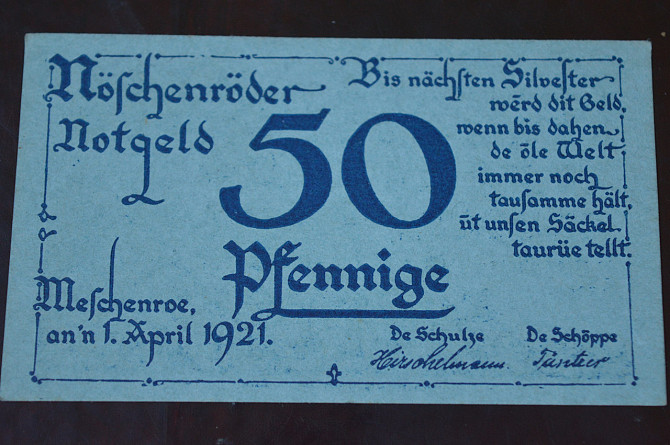 Nöschenröder
Notgeld
50
Pfennige
Bis nächsten Silvester
werd dit Geld,
wenn bis dahen
de ōle Welt
immer noch
tausamme hält,
ūt unsen Säckel
taurüe tellt.
Meschenroe,
an'n 1. April 1921.
De Schulze
Hirschelmann
De Schöppe